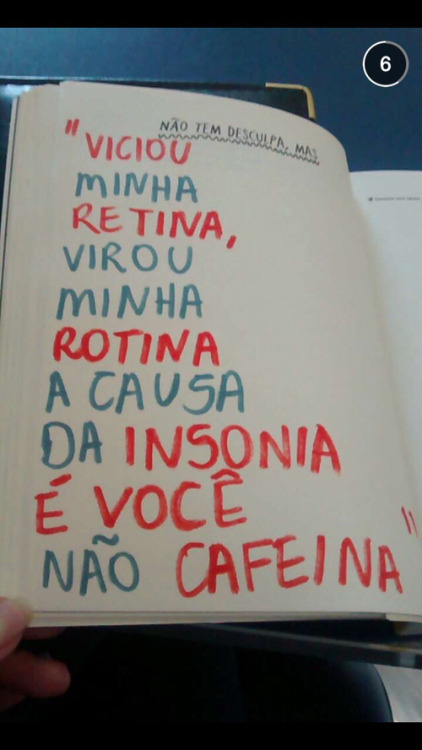 6
NÃO TEM DESCULPA, MAS
"VICIOU
MINHA
RETINA,
VIROU
MINHA
ROTINA
A CAUSA
DA INSONIA
É VOCÊ
NÃO CAFEINA"